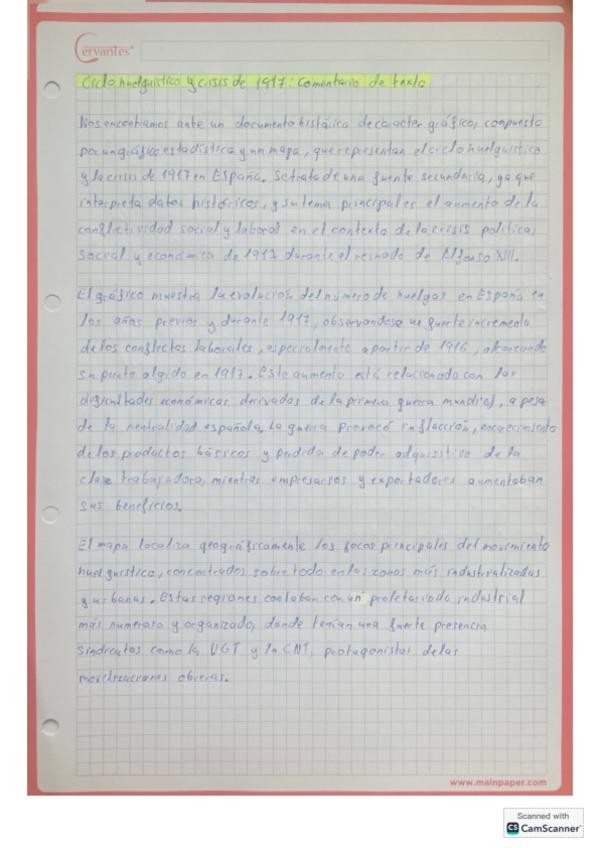 Cervantes
Ciclo huelguístico y crisis de 1917: Comentario de texto
Nos encontramos ante un documento histórico de caracter gráfico, compuesto
por un gráfico estadística y un mapa, que representan el ciclo huelguístico
y la crisis de 1917 en España. Se trata de una fuente secundaria, ya que
interpreta datos históricos, y su tema principal es el aumento de la
conflictividad social y laboral en el contexto de la crisis política,
social y económica de 1917 durante el reinado de Alfonso XIII.
El gráfico muestra la evolución del número de huelgas en España en
los años previos y durante 1917, observandose un fuerte incremento
de los conflictos laborales, especialmente a partir de 1916, alcanzando
su punto algido en 1917. Este aumento está relacionado con las
dificultades económicas derivadas de la primera guerra mundial, a pesar
de la neutralidad española. La guerra provocó inflacción, encarecimiento
de los productos básicos y perdida de poder adquisitivo de la
clase trabajadora, mientras empresarios y exportadores aumentaban
sus beneficios.
El mapa localiza geográficamente los focos principales del movimiento
huelguístico, concentrados sobre todo en las zonas más industrializadas
y urbanas. Estas regiones contaban con un proletariado industrial
más numeroso y organizado, donde tenían una fuerte presencia
sindicatos como la UGT y la CNT, protagonistas de las
movilizaciones obreras.
www.mainpaper.com
Scanned with
CS CamScanner